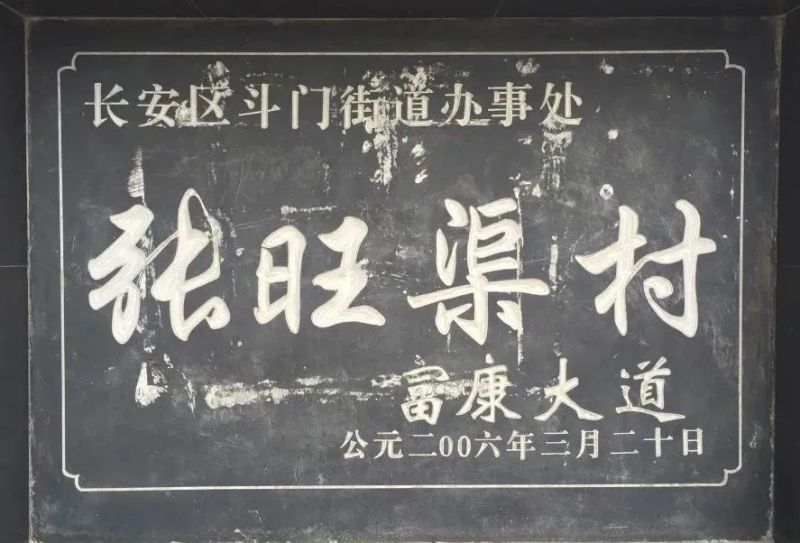 长安区斗门街道办事处
张旺渠村
富康大道
公元二00六年三月二十日